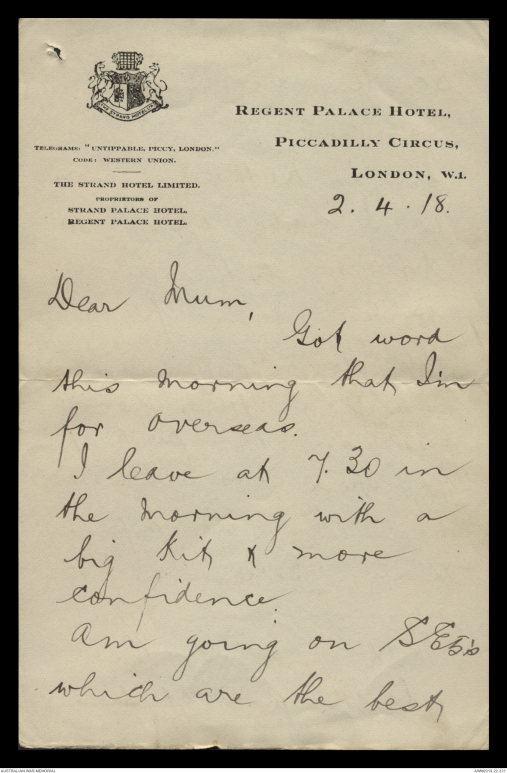 REGENT PALACE HOTEL,
PICCADILLY CIRCUS,
LONDON, W.1.
TELEGRAMS: "UNTIPPABLE, PICCY, LONDON."
CODE: WESTERN UNION.
THE STRAND HOTEL LIMITED.
PROPRIETORS OF
STRAND PALACE HOTEL.
REGENT PALACE HOTEL.
2. 4. 18.
Dear Mum,
Got word
this morning that I'm
for overseas.
I leave at 7.30 in
the morning with a
big kit & more
confidence.
Am going on SE5's
which are the best
AUSTRALIAN WAR MEMORIAL